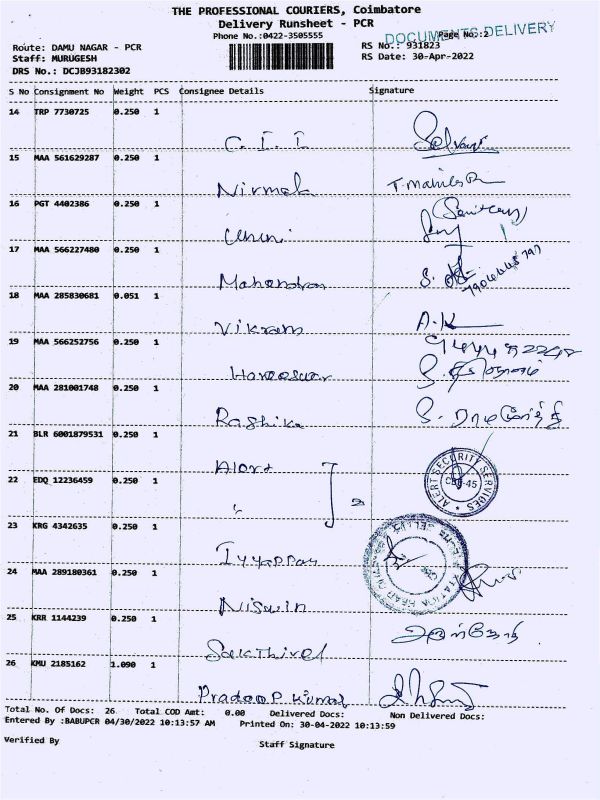 THE PROFESSIONAL COURIERS, Coimbatore
Delivery Runsheet - PCR
Phone No.:0422-3505555
DOCUMENTS DELIVERY
Page No.:2
Route: DAMU NAGAR - PCR
Staff: MURUGESH
DRS No.: DCJB93182302
RS No.: 931823
RS Date: 30-Apr-2022
S No Consignment No Weight PCS Consignee Details Signature
14 TRP 7730725 0.250 1 C.I.I Selvam
15 MAA 561629287 0.250 1 Nirmala
16 PGT 4402386 0.250 1
17 MAA 566227480 0.250 1 Mahendran
18 MAA 285830681 0.051 1 Vikram A.K
19 MAA 566252756 0.250 1 Hareeswar
20 MAA 281001748 0.250 1 Rashika
21 BLR 6001879531 0.250 1 Alert ALERT SECURITY SERVICES CBE-45
22 EDQ 12236459 0.250 1 " 2
23 KRG 4342635 0.250 1 Iyyappan
24 MAA 289180361 0.250 1
25 KRR 1144239 0.250 1 Sakthivel
26 KMU 2185162 1.090 1 Pradeep Kumar
Total No. Of Docs: 26 Total COD Amt: 0.00 Delivered Docs: Non Delivered Docs:
Entered By :BABUPCR 04/30/2022 10:13:57 AM Printed On: 30-04-2022 10:13:59
Verified By Staff Signature